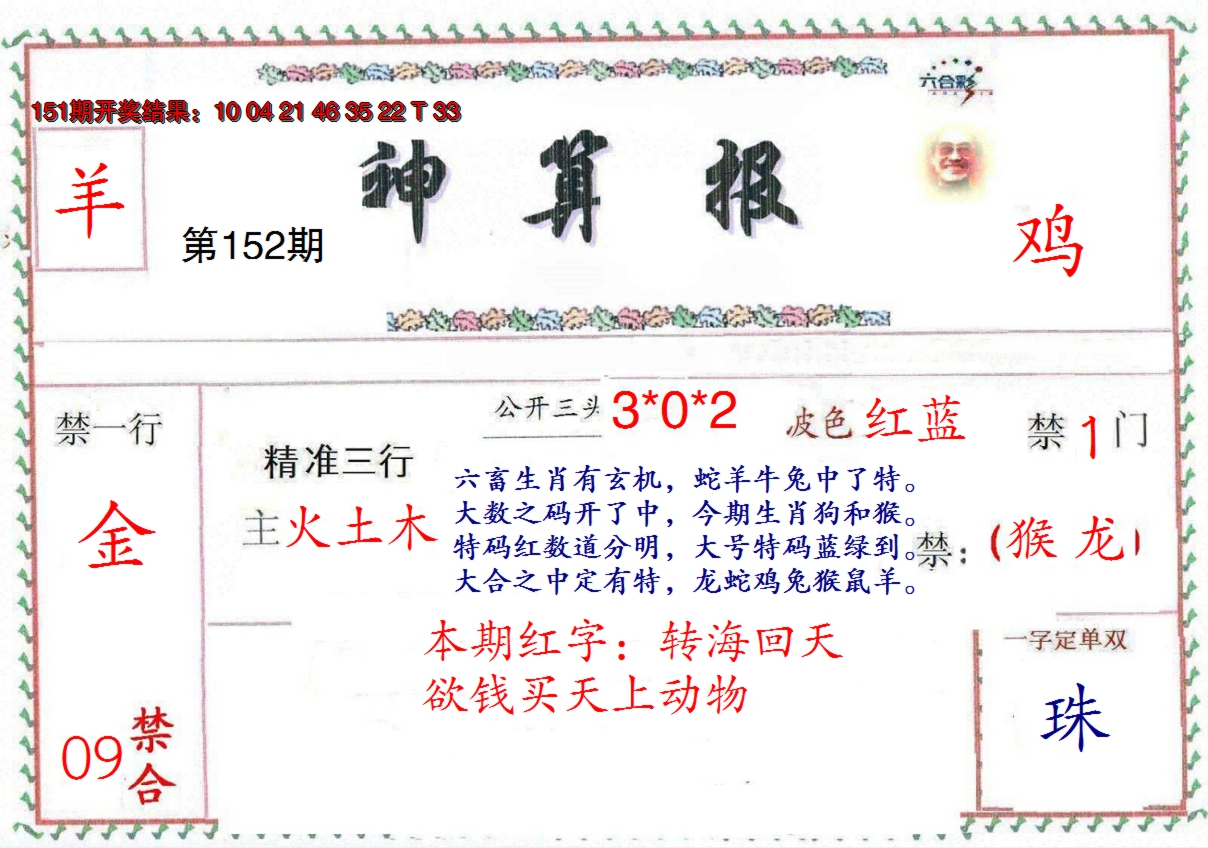 六合彩
151期开奖结果：10 04 21 46 35 22 T 33
羊
神算报
第152期
鸡
禁一行
金
09
禁合
精准三行
主火土木
公开三头 3*0*2
波色 红蓝
禁1门
六畜生肖有玄机，蛇羊牛兔中了特。
大数之码开了中，今期生肖狗和猴。
特码红数道分明，大号特码蓝绿到。
大合之中定有特，龙蛇鸡兔猴鼠羊。
禁：（猴 龙）
本期红字：转海回天
欲钱买天上动物
一字定单双
珠